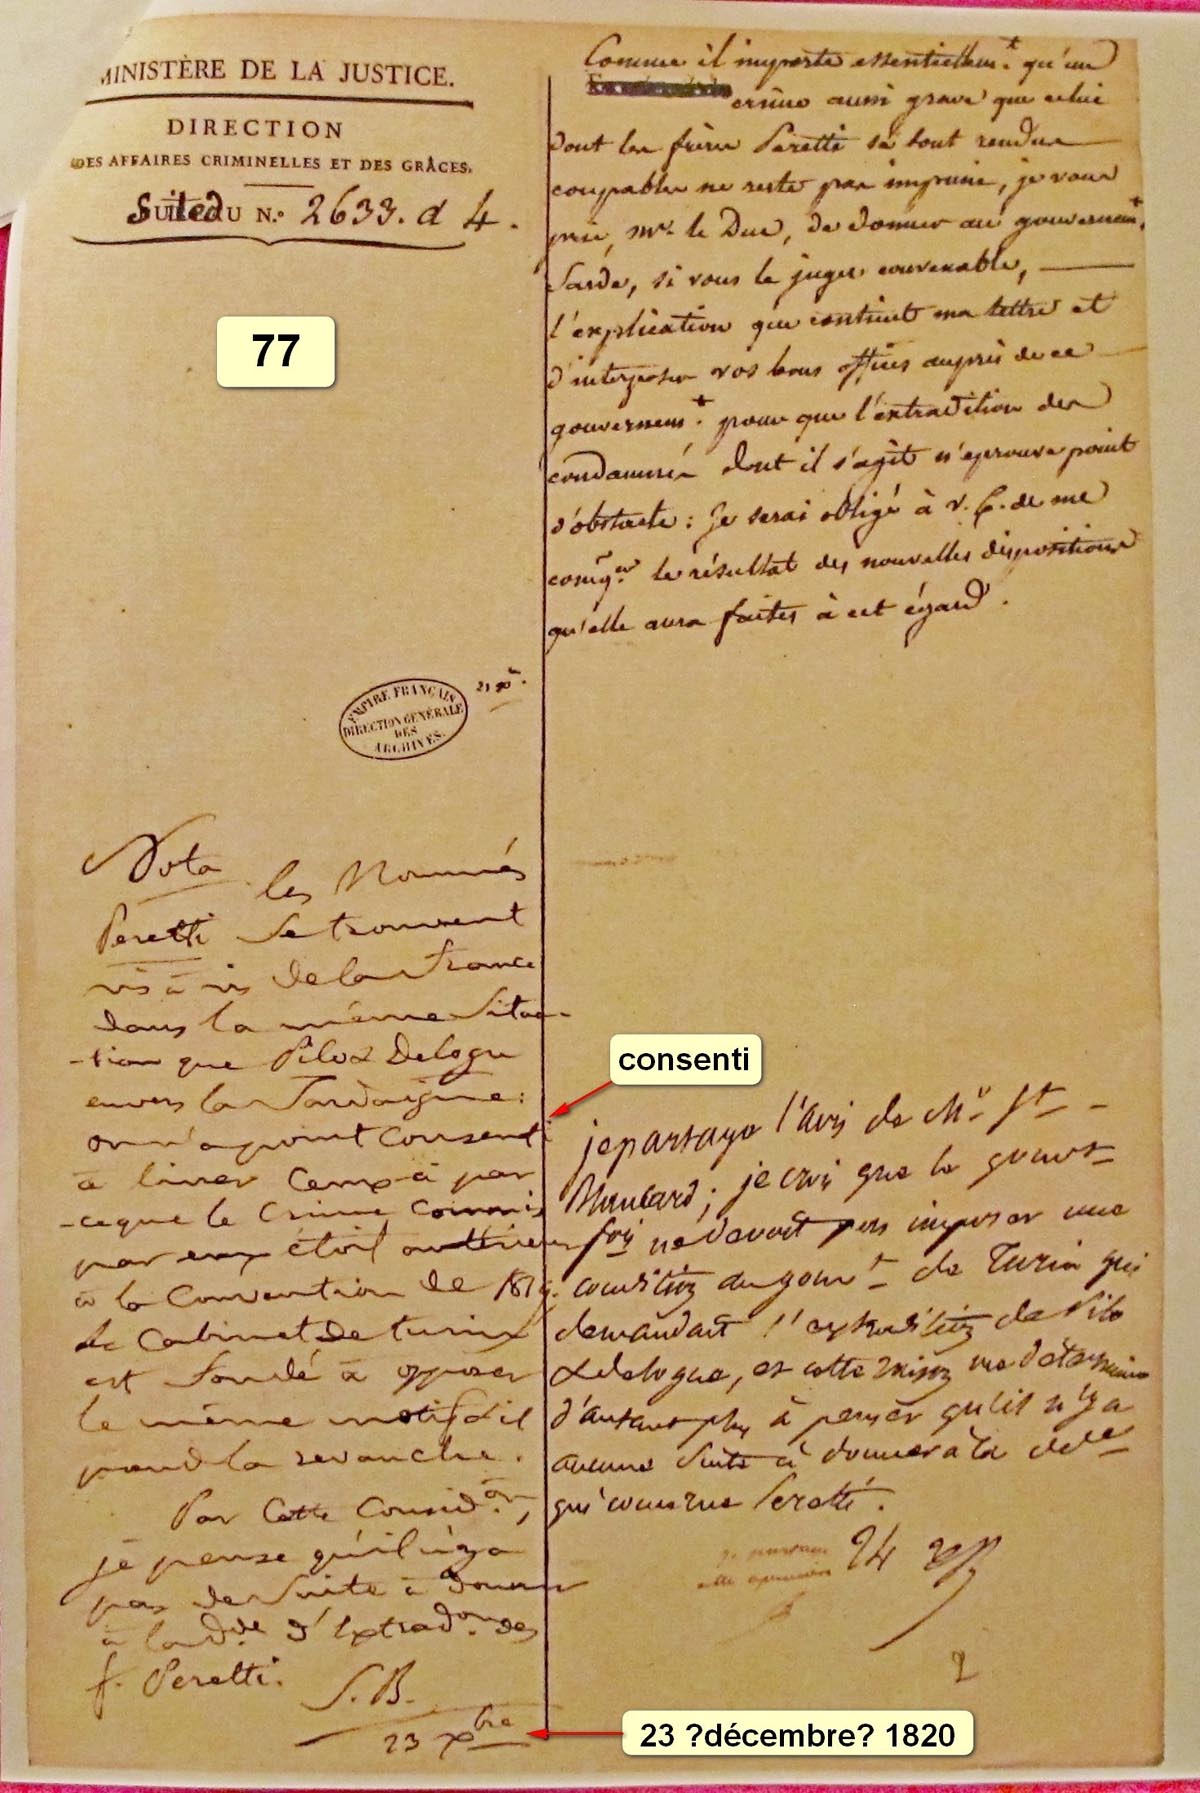 MINISTÈRE DE LA JUSTICE.
DIRECTION
DES AFFAIRES CRIMINELLES ET DES GRÂCES.
Suite du N.º 2633. d 4.
77
Comme il importe essentiellem.t qu'un
crime aussi grave que celui
dont les frères Peretti se sont rendus
coupables ne reste pas impuni, je vous
prie, Mr. le Duc, de donner au gouvernem.t
Sarde, si vous le jugez convenable,
l'explication que contient ma lettre et
d'interposer vos bons offices auprès de ce
gouvernem.t pour que l'extradition des
condamnés dont il s'agit n'éprouve point
d'obstacle : Je serai obligé à V. E. de me
comuq.er le résultat des nouvelles dispositions
qu'elle aura faites à cet égard.
EMPIRE FRANÇAIS
DIRECTION GÉNÉRALE
DES
ARCHIVES.
Nota les Nommés
Peretti se trouvent
vis à vis de la France
dans la même Situa-
-tion que Pilo & Delogu
envers la Sardaigne :
on n'a point consenti
à livrer Ceux-ci par
-ceque le Crime Commis
par eux étoit antérieur
à la Convention de 1819.
le Cabinet de turin
est fondé à opposer
le même motif & il
prend la revanche.
Par Cette Consid.on,
je pense qu'il n'y a
pas de Suite à donner
à la dde d'Extrad.on des
f. Peretti.
S.B.
23 Xbre
consenti
je partage l'avis de Mr St
; je crois que le gouvt
fois ne devait pas imposer une
condition au gouvt de Turin qui
demandait l'extradition de Pilo
& delogu, et cette raison me détermine
d'autant plus à penser qu'il n'y a
aucune suite à donner à la dde
qui concerne Peretti.
24
2
23 ?décembre? 1820